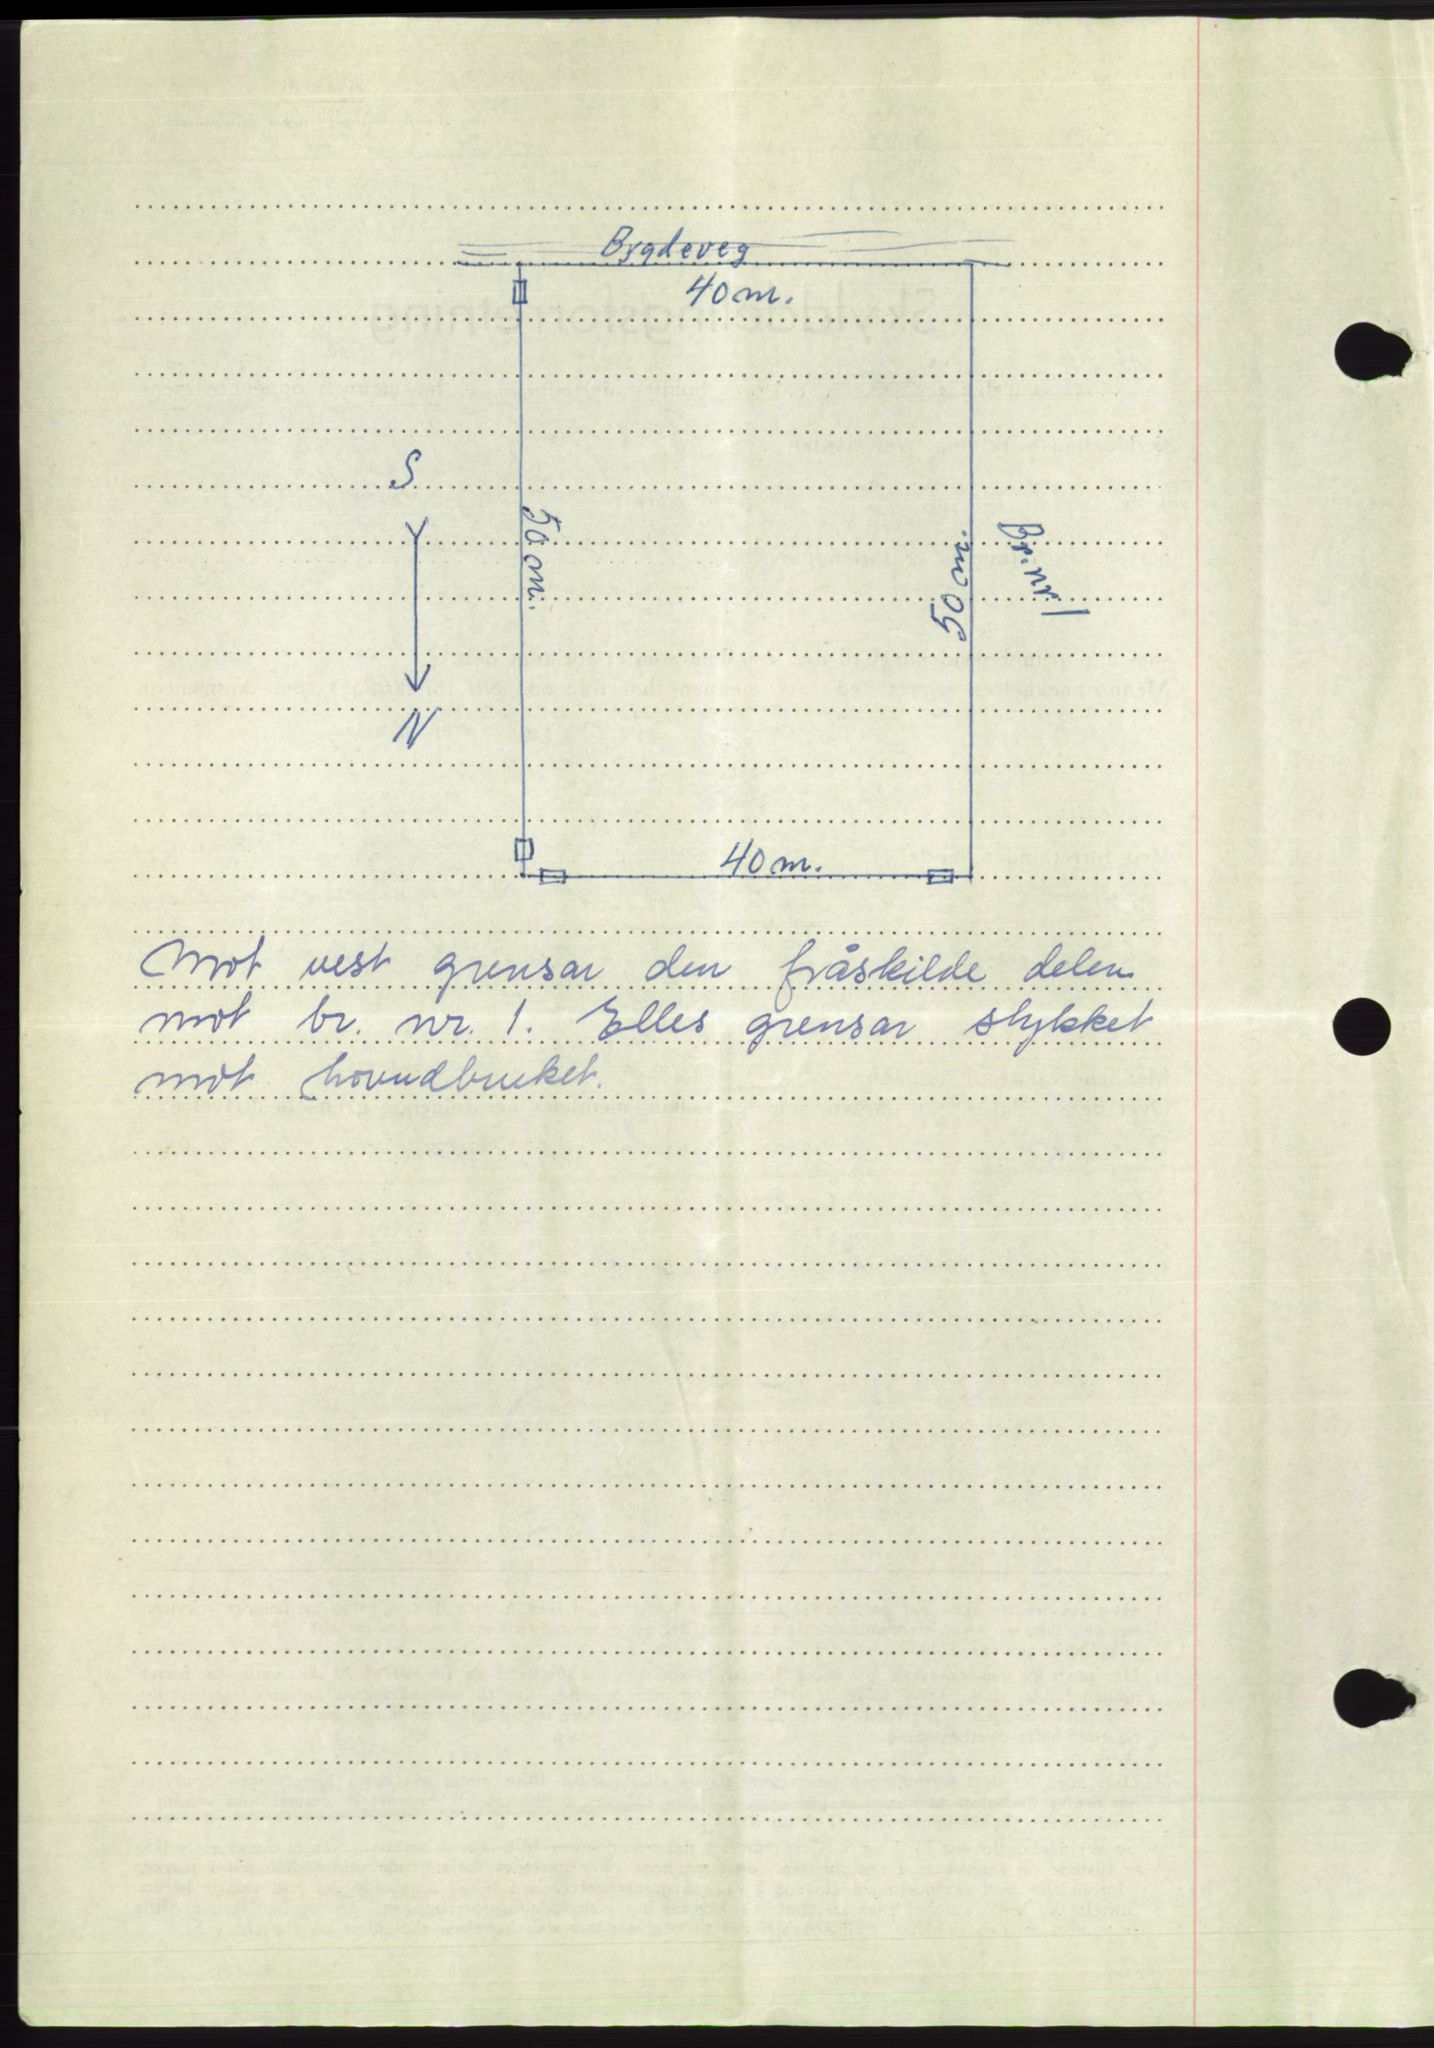 Bygdeveg
40 m.
S
50 m.
50 m.
Br. nr 1
N
40 m.
Mot vest grensar den fråskilde delen
mot br. nr. 1. Elles grensar stykket
mot hovudbruket.